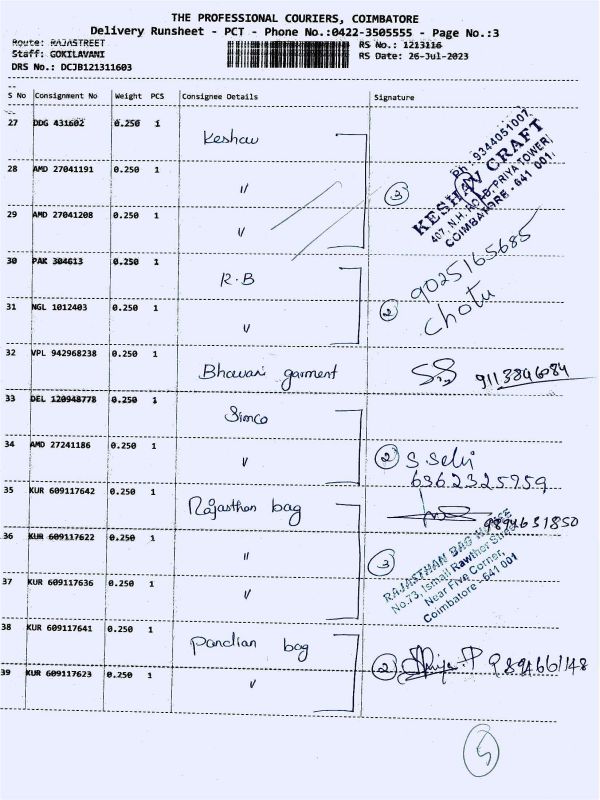 THE PROFESSIONAL COURIERS, COIMBATORE
Delivery Runsheet - PCT - Phone No.:0422-3505555 - Page No.:3
Route: RAJASTREET
RS No.: 1213116
Staff: GOKILAVANI
RS Date: 26-Jul-2023
DRS No.: DCJB121311603
S No Consignment No Weight PCS Consignee Details Signature
27 DDG 431602 0.250 1 Keshav
Ph: 9344051007
KESHAV CRAFT
407, N.H. ROAD, PRIYA TOWER
COIMBATORE - 641 001.
28 AMD 27041191 0.250 1 "
3
29 AMD 27041208 0.250 1 "
30 PAK 304613 0.250 1 R.B
9025165685
31 NGL 1012403 0.250 1 "
2 Chotu
32 VPL 942968238 0.250 1 Bhavani garment
9113846084
33 DEL 120948778 0.250 1 Simco
34 AMD 27241186 0.250 1 "
2 S. Selvi
6362325959
35 KUR 609117642 0.250 1 Rajasthan bag
9894631850
36 KUR 609117622 0.250 1 "
3
RAJASTHAN BAG
No.73, Ismail Rawther Street
Near Five Corner,
Coimbatore - 641 001
37 KUR 609117636 0.250 1 "
38 KUR 609117641 0.250 1 Pandian bag
2 9894661148
39 KUR 609117623 0.250 1 "
5